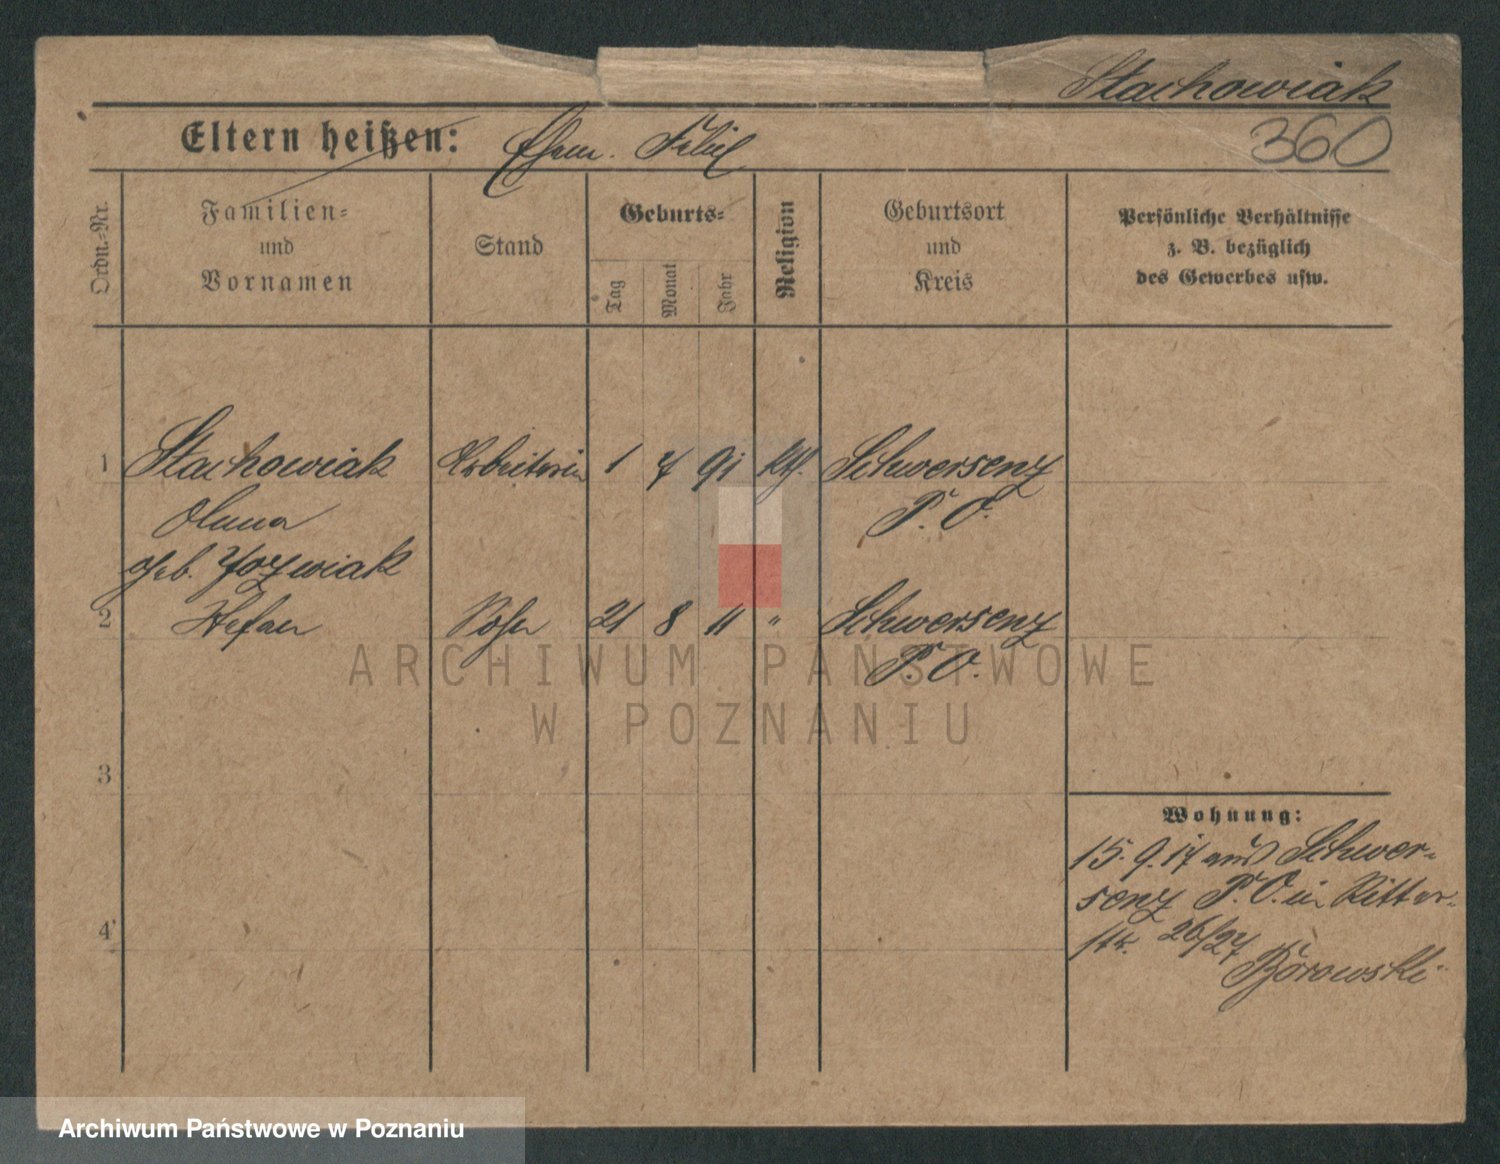 Stachowiak
Eltern heißen: Ehem. Felix
360
Ordn.-Nr.
Familien-
und
Vornamen
Stand
Geburts-
Tag
Monat
Jahr
Religion
Geburtsort
und
Kreis
Persönliche Verhältnisse
z. B. bezüglich
des Gewerbes usw.
1 Stachowiak Arbeiterin 1 7 91 kth. Schwersenz
P. O.
geb. Jozwiak
2 Stefan Sohn 21 8 11 " Schwersenz
P. O.
3
Wohnung:
15. 9. 17 aus Schwer-
senz P. O. in Ritter-
4 str. 26/27
Borowski
ARCHIWUM PAŃSTWOWE
W POZNANIU
Archiwum Państwowe w Poznaniu